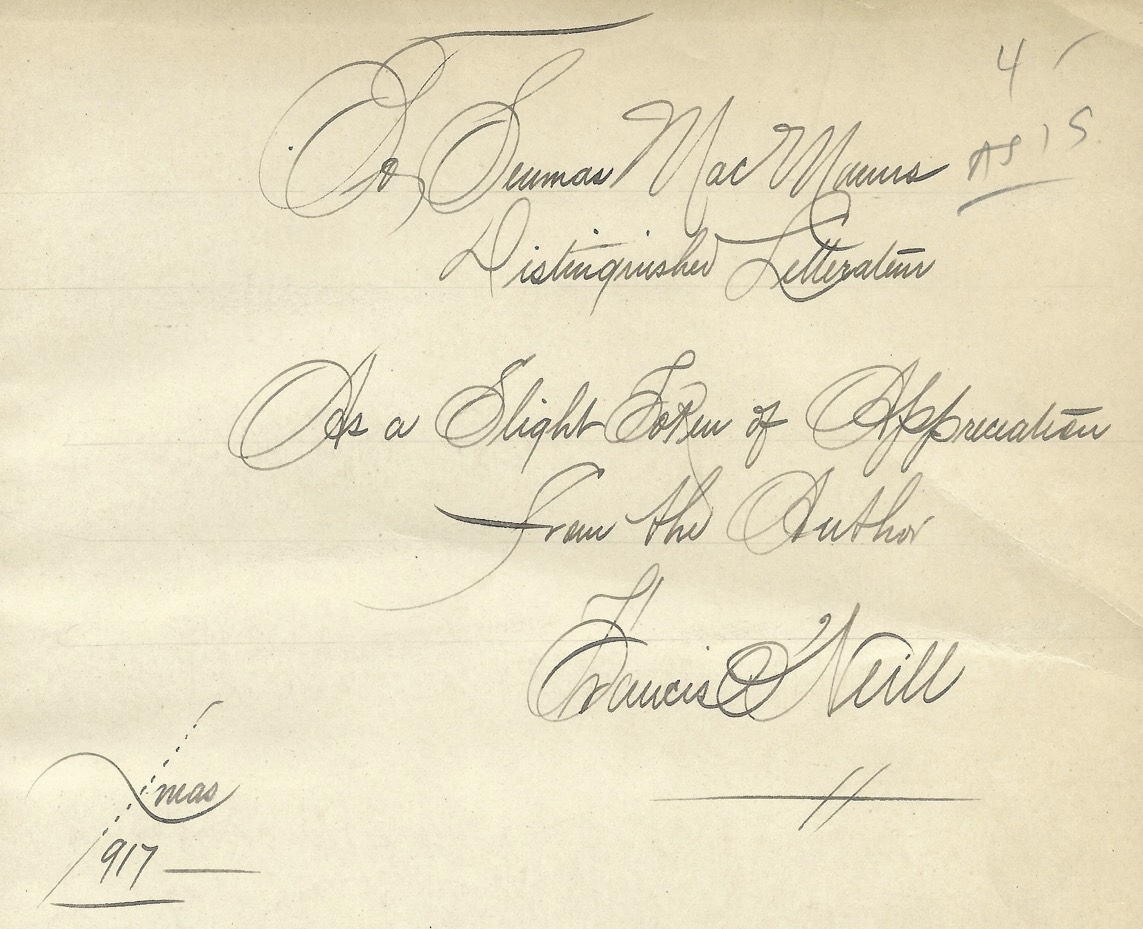 To Seumas MacManus
Distinguished Litterateur
As a Slight Token of Appreciation
From the Author
Francis O'Neill
Xmas
1917
4
AS IS